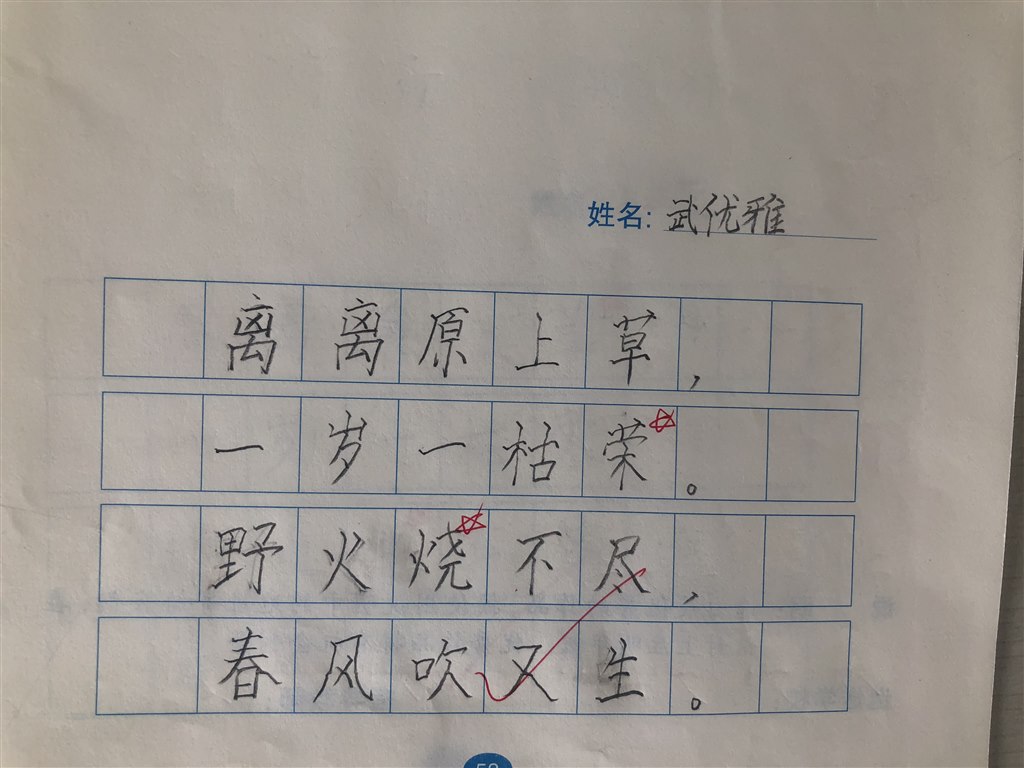 姓名: 武优雅
离离原上草,
一岁一枯荣。
野火烧不尽,
春风吹又生。